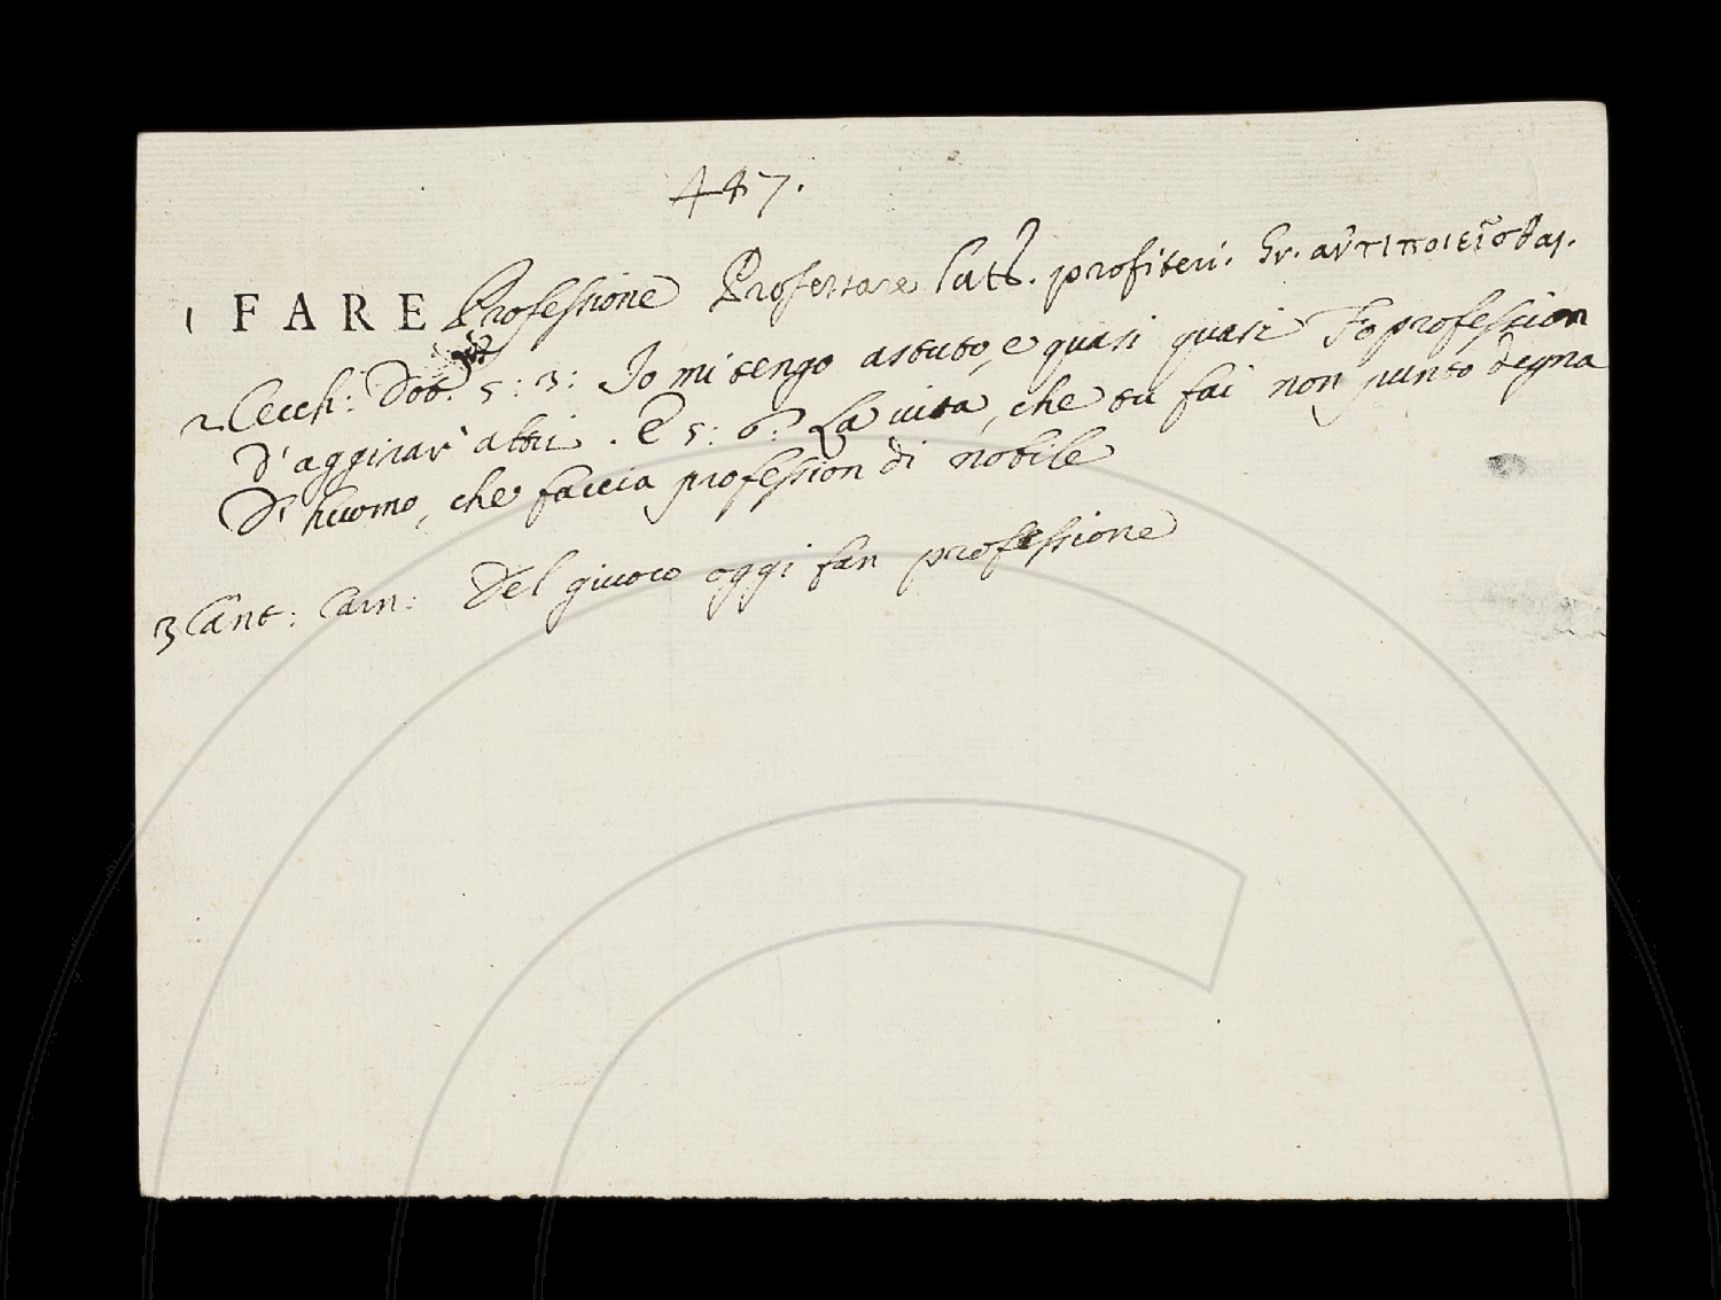 447.
1 FARE Professione Professare Latt. profiteri. Gr. ἀντιποιεῖσθαι.
2 Cecch: Dot. 5: 3: Io mi tengo astuto, e quasi quasi Fo profession
D' aggirar' altri. E 5: 6: La vita, che tu fai non punto degna
D' huomo, che faccia profession di nobile
3 Cant: Carn: Del giuoco oggi fan professione